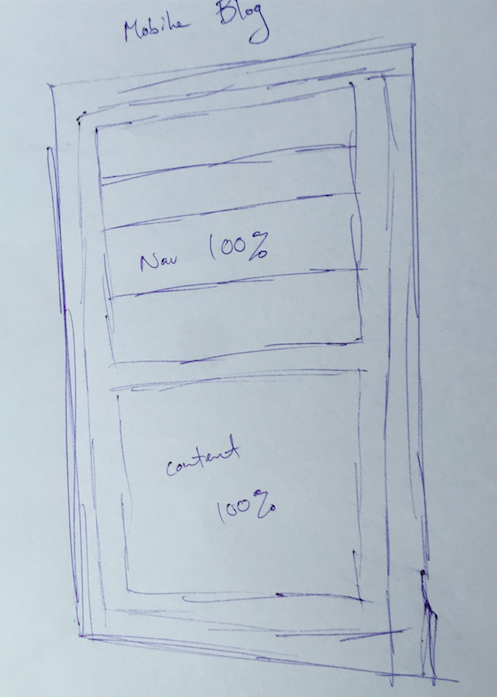 Mobile Blog
Nav 100%
content
100%